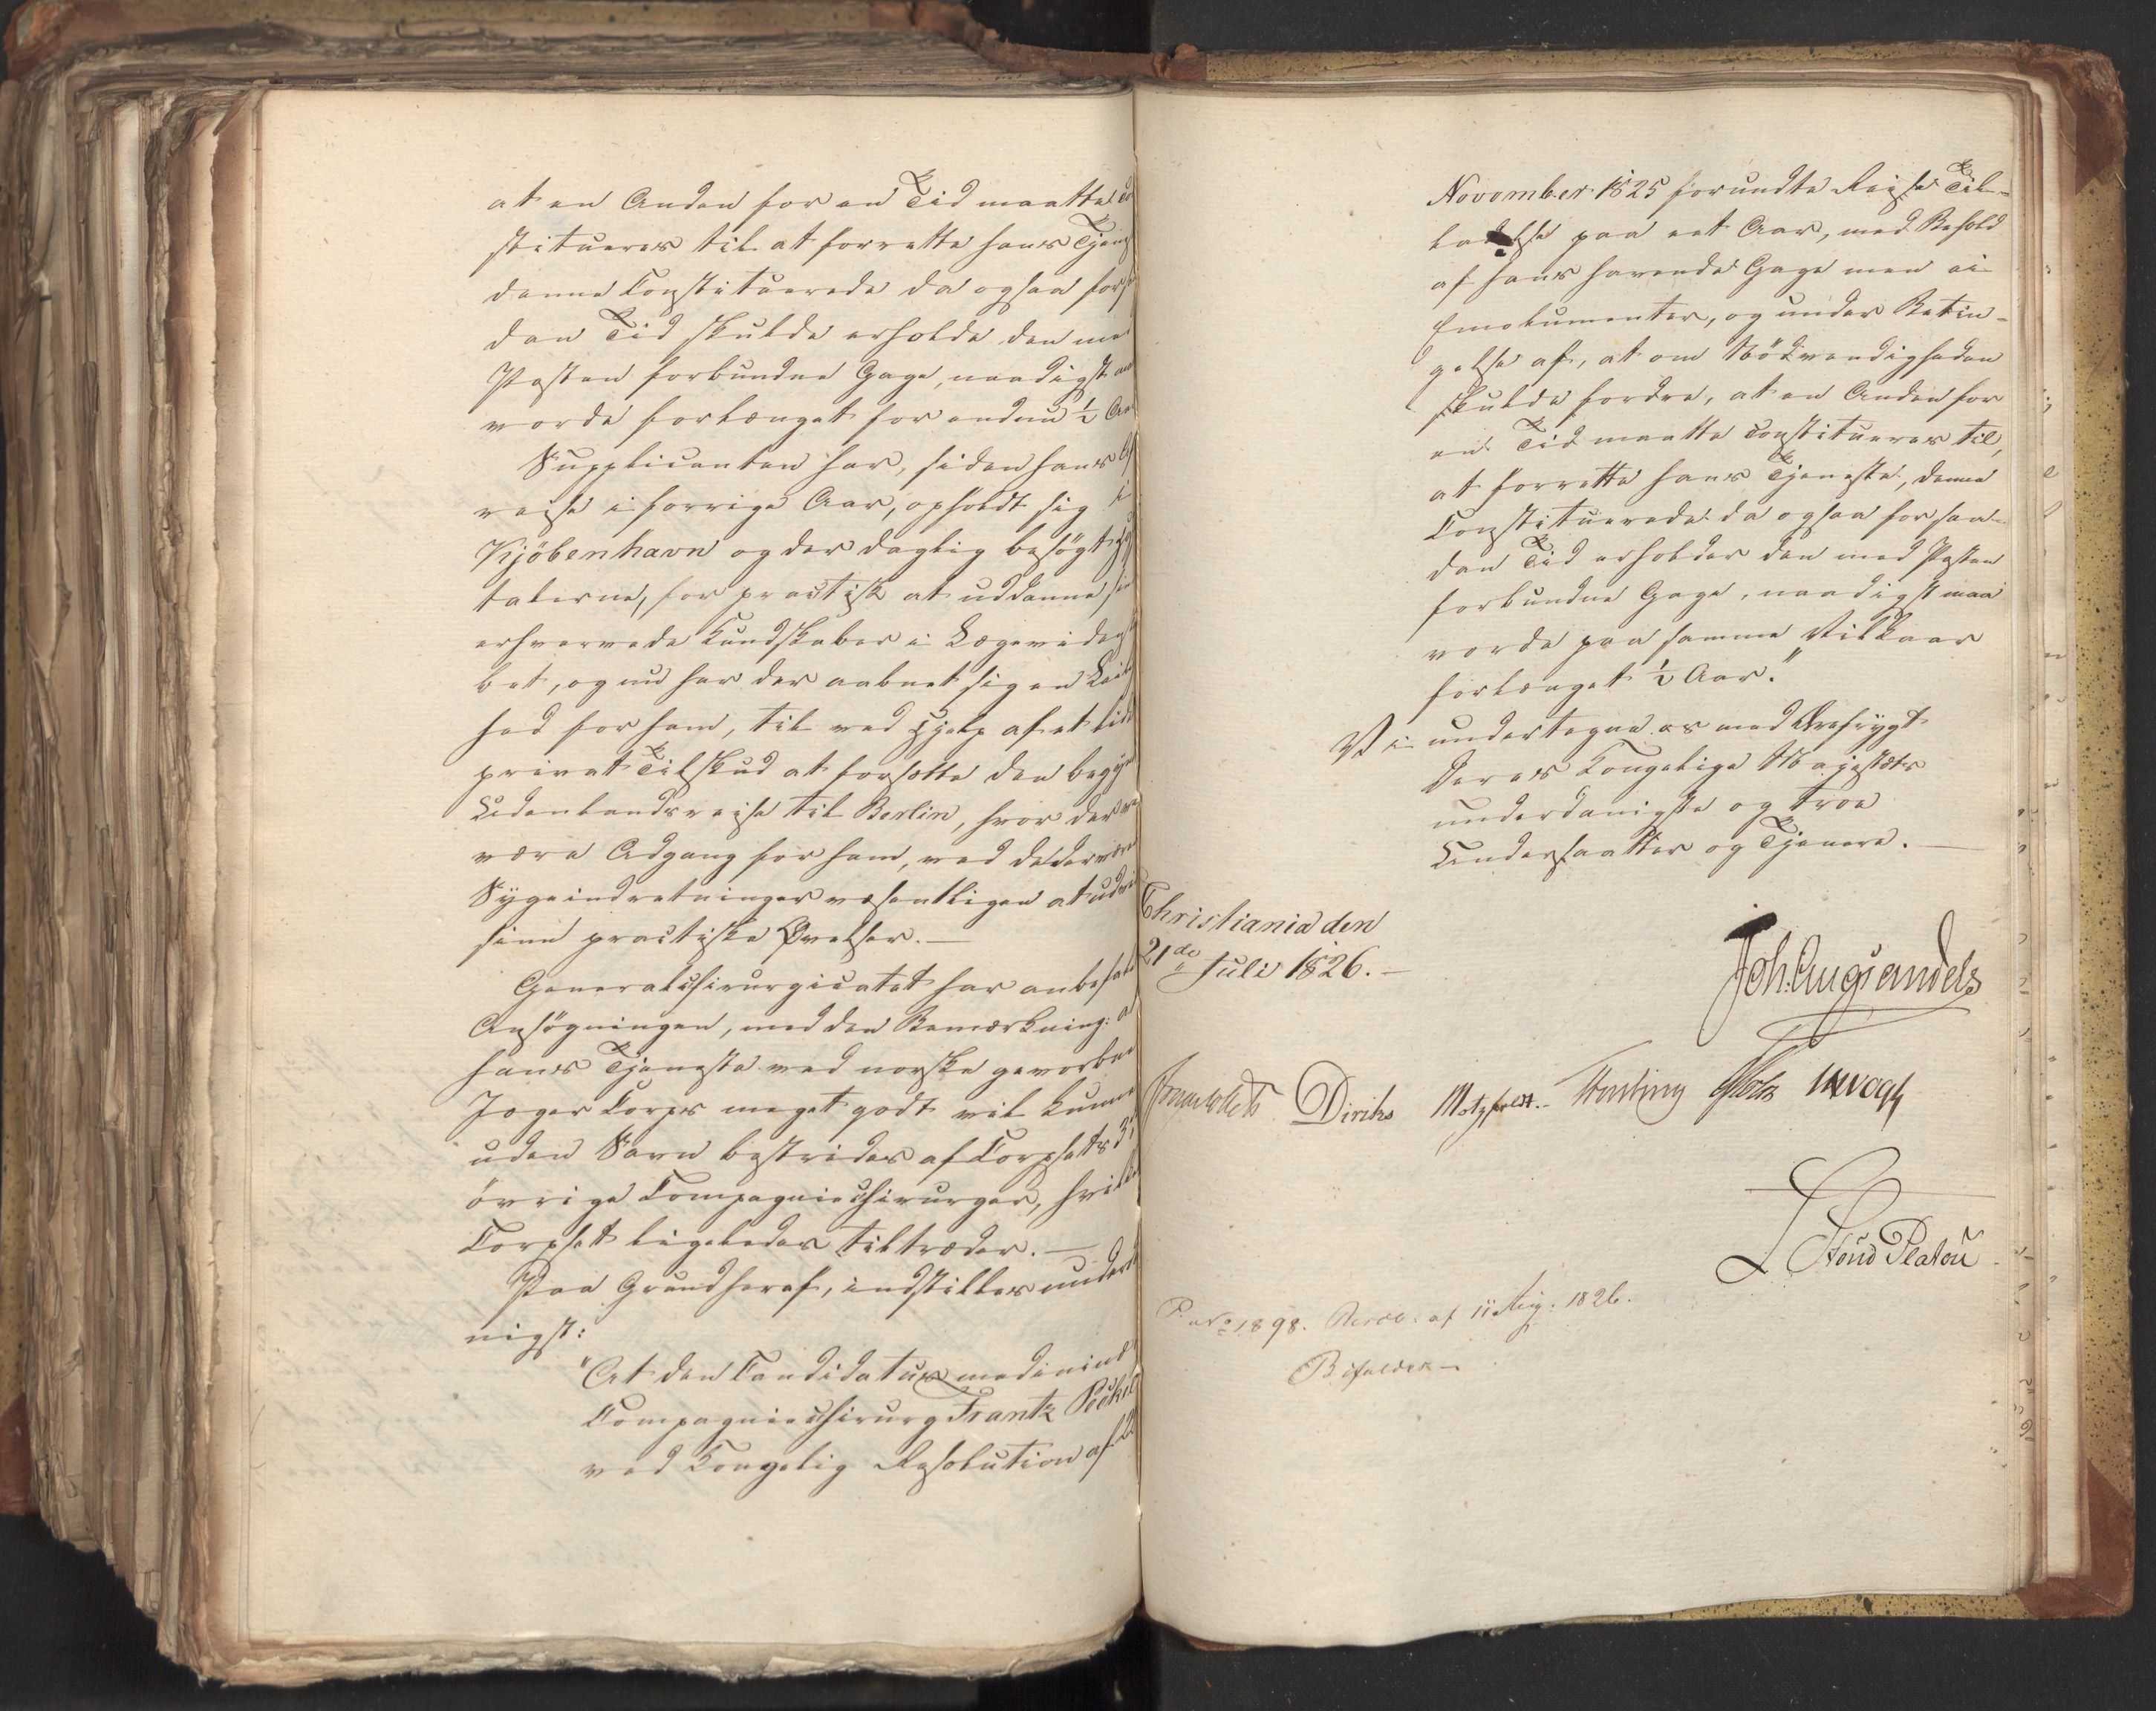 at en Anden for en Tid maatte
stitueres til at forrette hans Tjenes
denne Constituerede da ogsaa for
den Tid skulde erholde den med
Posten forbundne Gage, naadigst
vorde forlænget for endnu ½ Aar
Supplicanten har, siden hans Af
reise i forrige Aar, opholdt sig i
Kjöbenhavn og der daglig besögt
talerne, for practisk at uddanne
erhvervede Kundskaber i Lægevidens
bet, og nu har der aabnet sig en Leilig
hed for ham, til ved Hjelp af et lidet
privat Tilskud at forsætte den begyn
Udenlandsreise til Berlin, hvor der
være Adgang for ham, ved de derværen
Sygeindretninger væsentligen at udvide
sine practiske Øvelser. —
Generalchirurgicatet har anbefalet
Ansögningen, med den Bemærkning: at
hans Tjeneste ved norske gevorbne
Jæger Corps meget godt vil kunne
uden Savn bestrides af Corpsets 3
övrige Compagniechirurger, hvilket
Corpset ligeledes tiltræder. —
Paa Grund heraf, indstilles underda
nigst:
"At den Candidatus medicinæ
Compagniechirurg Frantz
ved Kongelig Resolution af 22
November 1825 forundte Reise Til-
ladelse paa eet Aar, med Behold
af hans havende Gage men ei
Emolumenter, og under Betin-
gelse af, at om Nödvendigheden
skulde fordre, at en Anden for
en Tid maatte constitueres til,
at forrette hans Tjeneste, denne
Constituerede da ogsaa for saa-
dan Tid erholder den med Posten
forbundne Gage, naadigst maa
vorde paa samme Vilkaar
forlænget ½ Aar."
Vi undertegne os med Ærefrygt
Deres Kongelige Majestæts
underdanigste og troe
Undersaatter og Tjenere. —
Christiania den
21de Juli 1826. —
Joh. Aug. Sandels
Diriks Motzfeldt. Fasting Holst
Stoud Platou
P. No 1898. Resol: af 11 Aug. 1826.
Bifaldes —